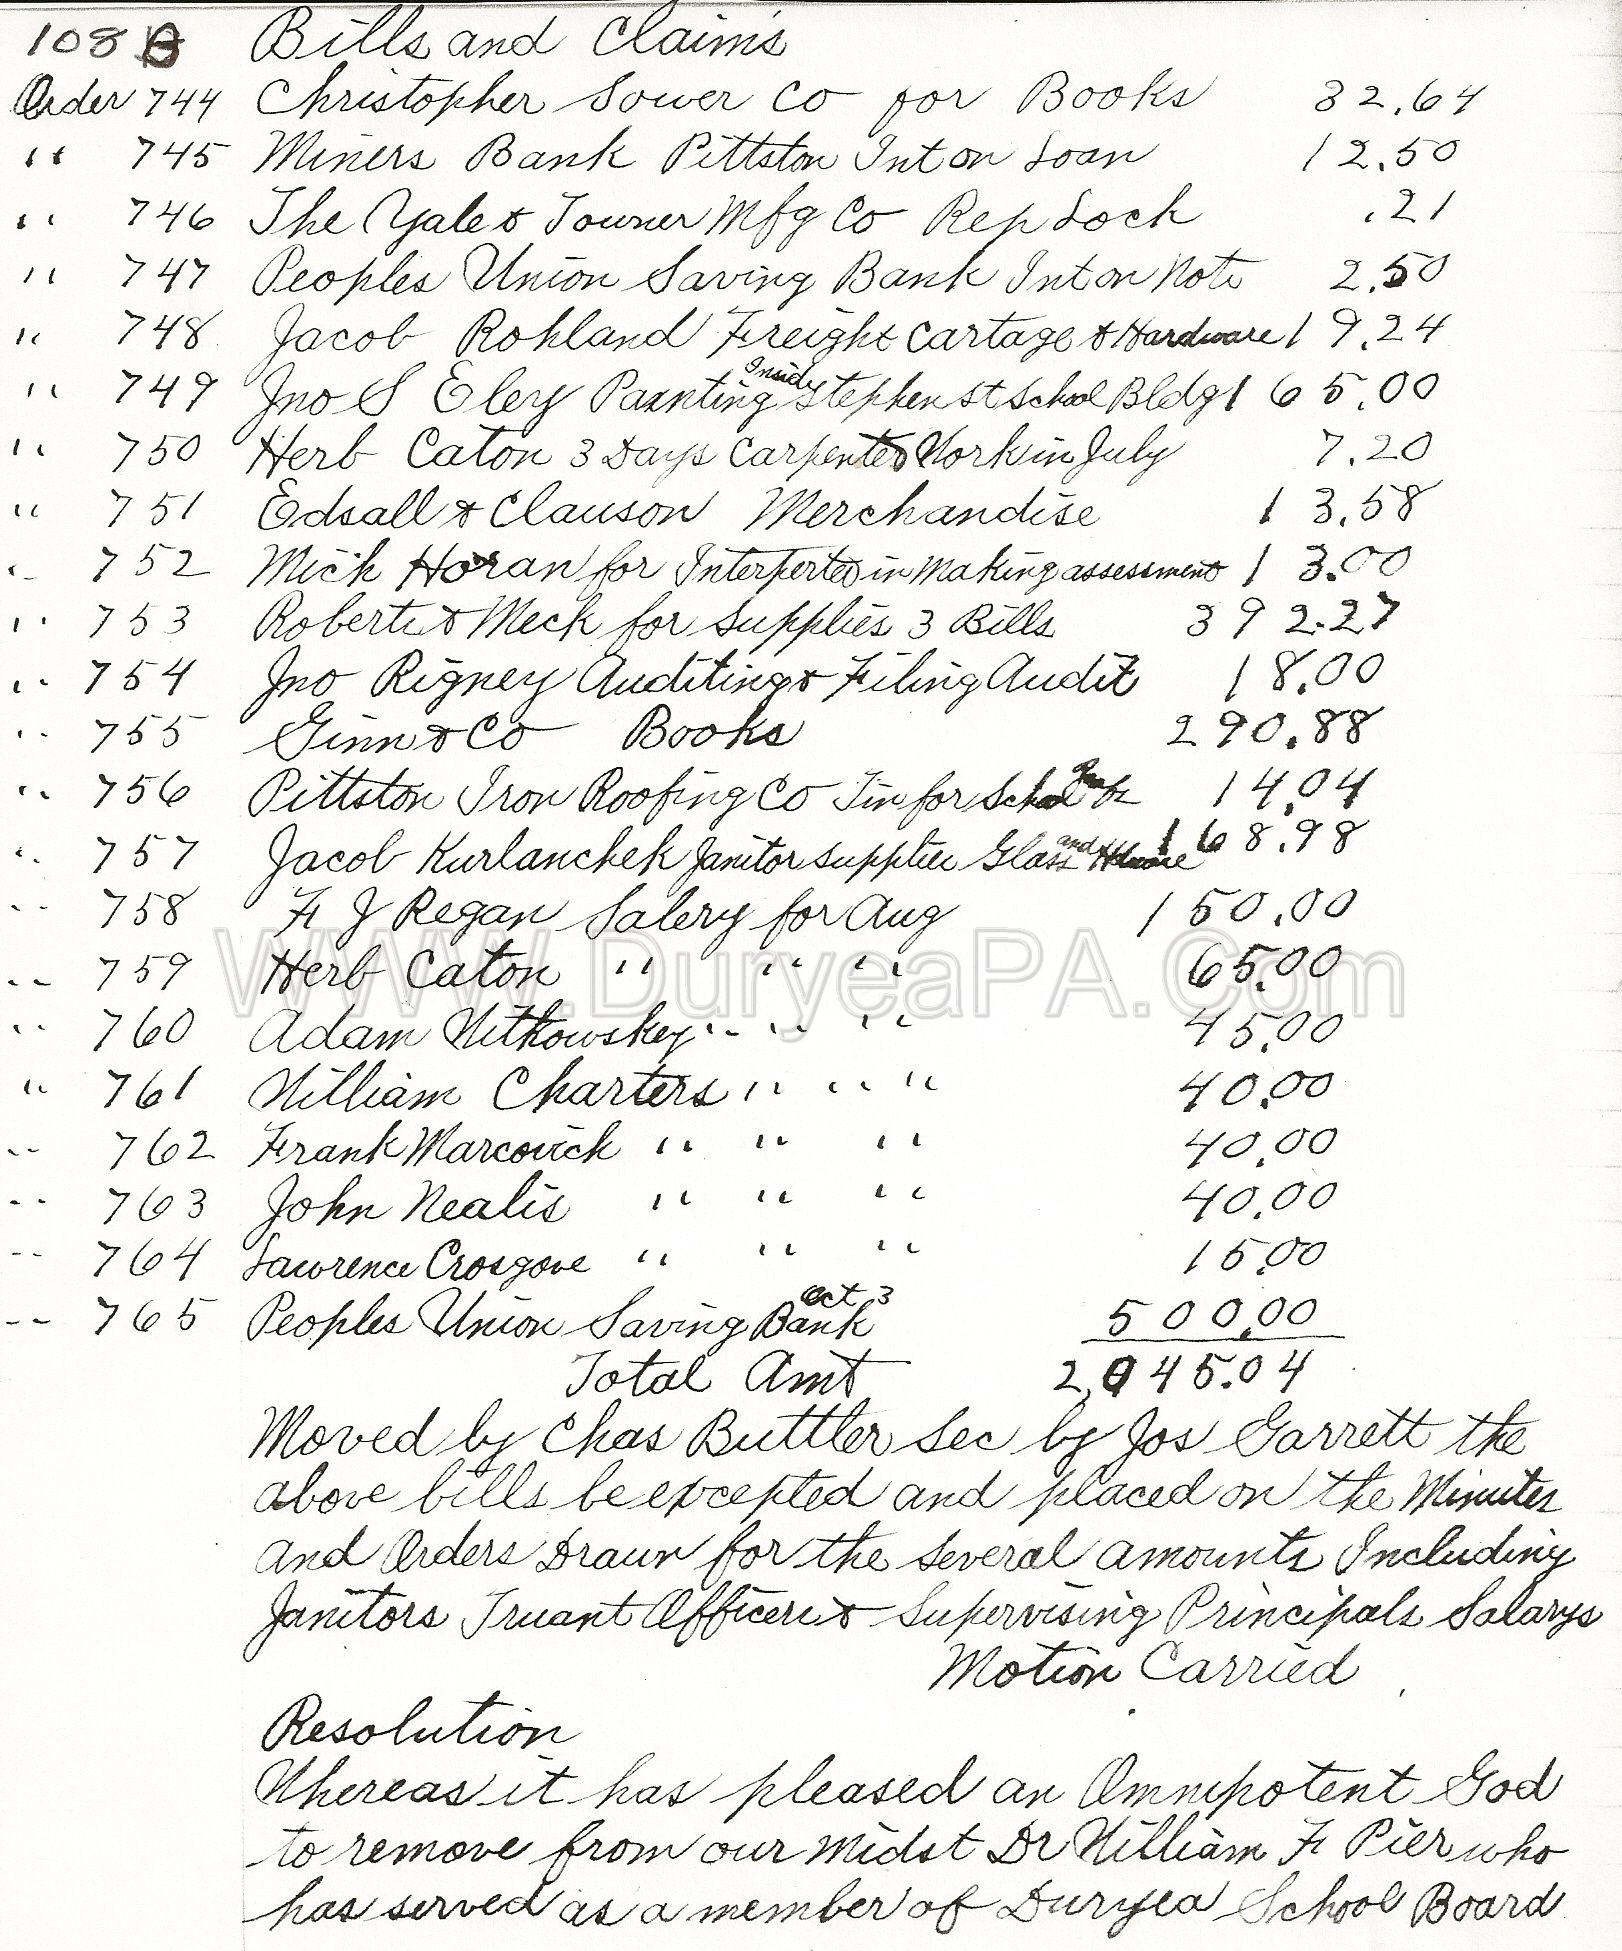 108 B Bills and Claims
Order 744 Christopher Sower Co for Books 32.64
" 745 Miners Bank Pittston Int on Loan 12.50
" 746 The Yale & Towner Mfg Co Rep Lock .21
" 747 Peoples Union Saving Bank Int on Note 2.50
" 748 Jacob Rohland Freight Cartage & Hardware 19.24
" 749 Jno S Eley Painting Inside Stephen St School Bldg 165.00
" 750 Herb Caton 3 Days Carpenter Work in July 7.20
" 751 Edsall & Clauson Merchandise 13.58
" 752 Mick Horan for Interperter in Making assessment 13.00
" 753 Roberts & Meck for Supplies 3 Bills 392.27
" 754 Jno Rigney Auditing & Filing Audit 18.00
" 755 Ginn & Co Books 290.88
" 756 Pittston Iron Roofing Co Tin for School 14.04
" 757 Jacob Kurlanchek Janitor Supplies Glass and 168.98
" 758 F J Regan Salery for Aug 150.00
" 759 Herb Caton " " " 65.00
" 760 Adam Witkowskey " " " 45.00
" 761 William Charters " " " 40.00
" 762 Frank Marcovich " " " 40.00
" 763 John Nealis " " " 40.00
" 764 Lawrence Crosgove " " " 15.00
" 765 Peoples Union Saving Bank Oct 3 500.00
Total Amt 2,045.04
Moved by Chas Buttler Sec by Jos Garrett the
above bills be excepted and placed on the Minutes
and Orders Drawn for the several amounts Including
Janitors Truant Officers & Supervising Principals Salarys
Motion Carried
Resolution
Whereas it has pleased an Omnipotent God
to remove from our midst Dr William F Pier who
has served as a member of Duryea School Board
WWW.DuryeaPA.Com